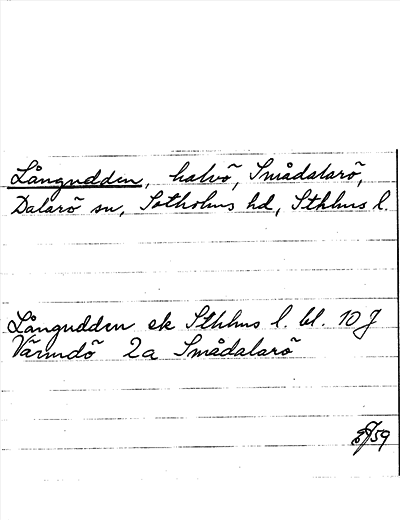 Långudden, halvö, Smådalarö,
Dalarö sn, Sotholms hd, Sthlms l.
Långudden ek Sthlms l. bl. 10 J
Värmdö 2a Smådalarö
59